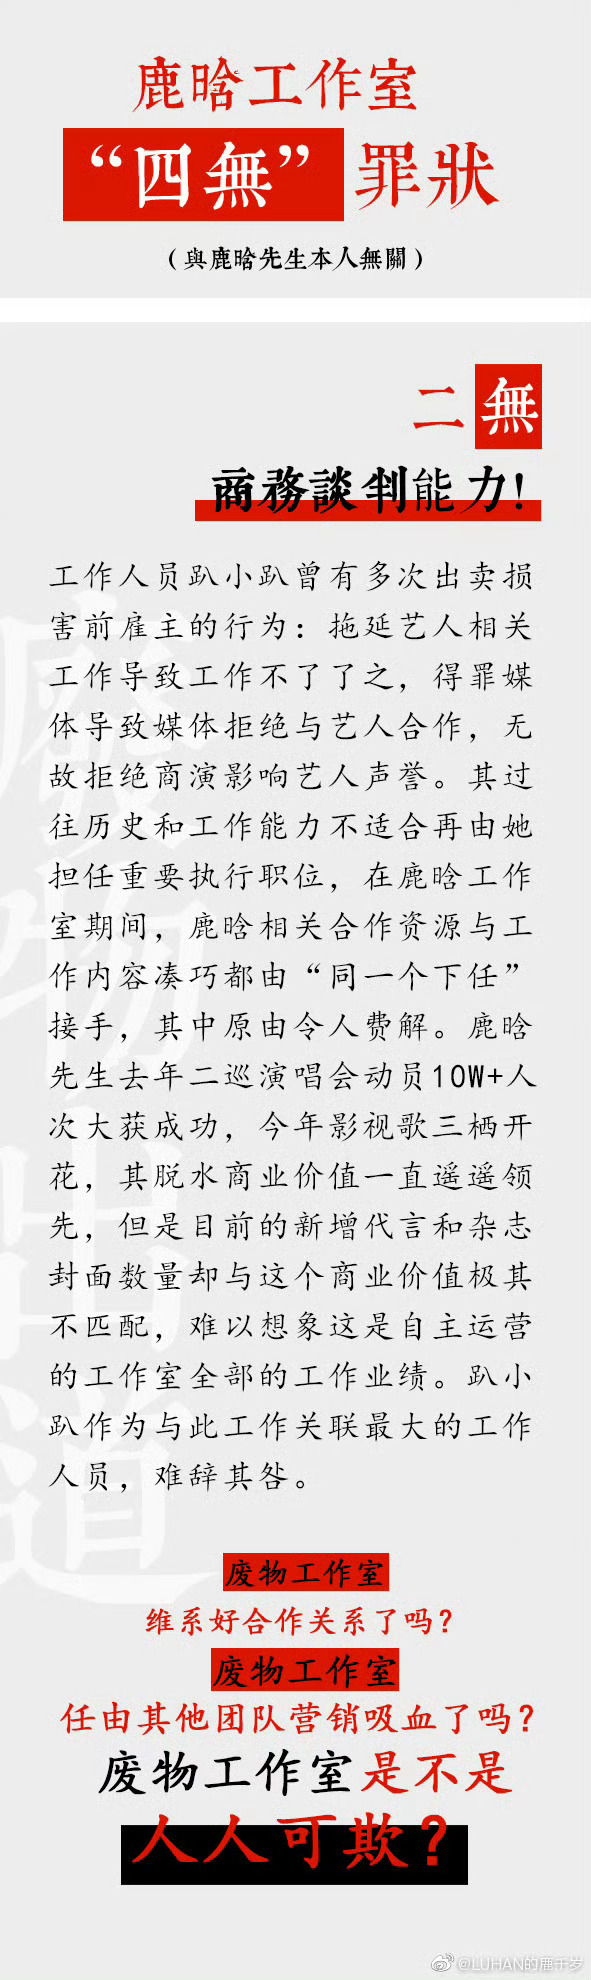 鹿晗工作室
“四無”罪狀
（與鹿晗先生本人無關）
二無
商務談判能力！
工作人员趴小趴曾有多次出卖损
害前雇主的行为：拖延艺人相关
工作导致工作不了了之，得罪媒
体导致媒体拒绝与艺人合作，无
故拒绝商演影响艺人声誉。其过
往历史和工作能力不适合再由她
担任重要执行职位，在鹿晗工作
室期间，鹿晗相关合作资源与工
作内容凑巧都由“同一个下任”
接手，其中原由令人费解。鹿晗
先生去年二巡演唱会动员10W+人
次大获成功，今年影视歌三栖开
花，其脱水商业价值一直遥遥领
先，但是目前的新增代言和杂志
封面数量却与这个商业价值极其
不匹配，难以想象这是自主运营
的工作室全部的工作业绩。趴小
趴作为与此工作关联最大的工作
人员，难辞其咎。
废物出道
废物工作室
维系好合作关系了吗？
废物工作室
任由其他团队营销吸血了吗？
废物工作室是不是
人人可欺？
@LUHAN的鹿千岁